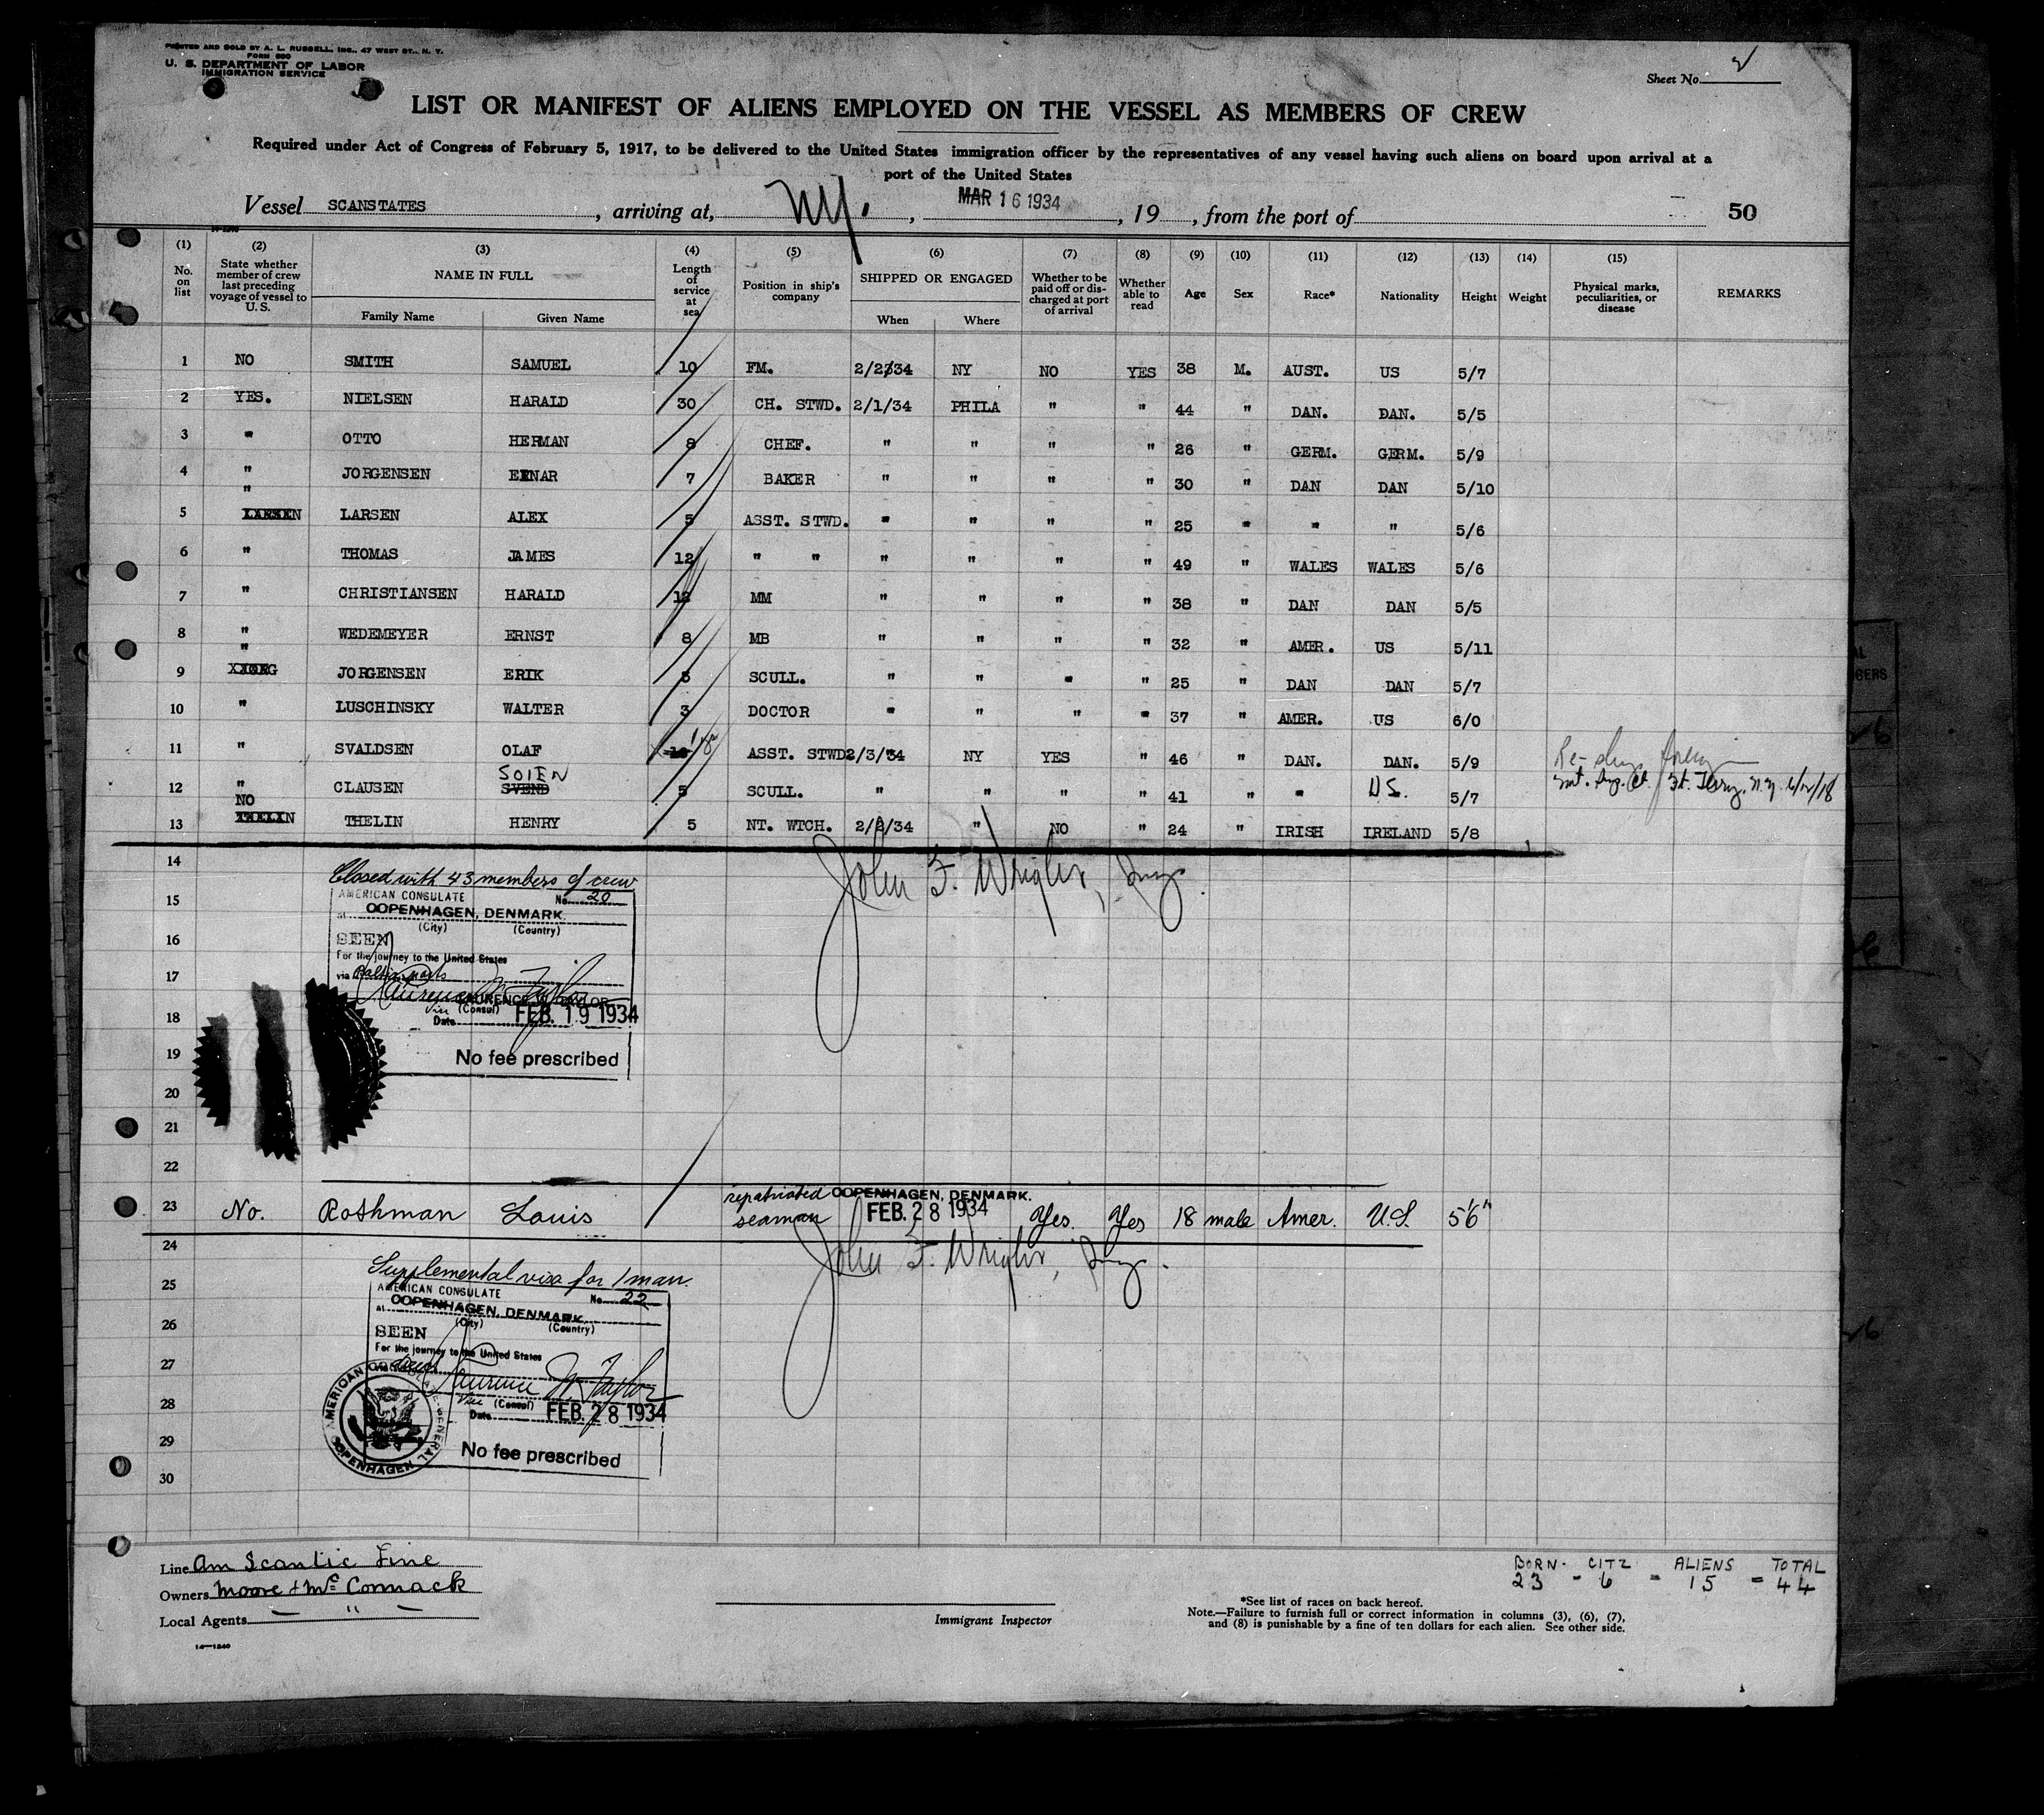 PRINTED AND SOLD BY A. L. RUSSELL, INC., 47 WEST ST., N. Y.
FORM 680
U. S. DEPARTMENT OF LABOR
IMMIGRATION SERVICE
Sheet No. 2
LIST OR MANIFEST OF ALIENS EMPLOYED ON THE VESSEL AS MEMBERS OF CREW
Required under Act of Congress of February 5, 1917, to be delivered to the United States immigration officer by the representatives of any vessel having such aliens on board upon arrival at a
port of the United States
Vessel SCANSTATES, arriving at, NY., MAR 16 1934, 19, from the port of 50
(1) (2) (3) (4) (5) (6) (7) (8) (9) (10) (11) (12) (13) (14) (15)
No. on list State whether member of crew last preceding voyage of vessel to U. S. NAME IN FULL Family Name Given Name Length of service at sea Position in ship's company SHIPPED OR ENGAGED When Where Whether to be paid off or discharged at port of arrival Whether able to read Age Sex Race* Nationality Height Weight Physical marks, peculiarities, or disease REMARKS
1 NO SMITH SAMUEL 10 FM. 2/2/34 NY NO YES 38 M. AUST. US 5/7
2 YES. NIELSEN HARALD 30 CH. STWD. 2/1/34 PHILA " " 44 " DAN. DAN. 5/5
3 " OTTO HERMAN 8 CHEF. " " " " 26 " GERM. GERM. 5/9
4 " JORGENSEN EINAR 7 BAKER " " " " 30 " DAN DAN 5/10
5 " LARSEN ALEX 5 ASST. STWD. " " " " 25 " " " 5/6
6 " THOMAS JAMES 12 " " " " " " 49 " WALES WALES 5/6
7 " CHRISTIANSEN HARALD 12 MM " " " " 38 " DAN DAN 5/5
8 " WEDEMEYER ERNST 8 MB " " " " 32 " AMER. US 5/11
9 " JORGENSEN ERIK 5 SCULL. " " " " 25 " DAN DAN 5/7
10 " LUSCHINSKY WALTER 3 DOCTOR " " " " 37 " AMER. US 6/0
11 " SVALDSEN OLAF ASST. STWD 2/3/34 NY YES " 46 " DAN. DAN. 5/9
12 " CLAUSEN SVEND SOIEN 5 SCULL. " " " 41 " " US. 5/7
13 NO THELIN HENRY 5 NT. WTCH. 2/2/34 " NO " 24 " IRISH IRELAND 5/8
14
Closed with 43 members of crew
John F. Wright, Insp.
15
AMERICAN CONSULATE No. 20
at COPENHAGEN, DENMARK.
(City) (Country)
16
SEEN
For the journey to the United States
17
via Baltic ports
Laurence W. Taylor
LAURENCE W. TAYLOR
Vice (Consul)
18
Date FEB. 19 1934
19
No fee prescribed
20
21
22
23 No. Rothman Louis repatriated seaman COPENHAGEN, DENMARK. FEB. 28 1934 Yes. Yes 18 male Amer. U.S. 5'6"
24
John F. Wright, Insp.
25
Supplemental visa for 1 man.
AMERICAN CONSULATE No. 22
at COPENHAGEN, DENMARK.
(City) (Country)
26
SEEN
For the journey to the United States
27
Laurence W. Taylor
28
Vice (Consul)
Date FEB. 28 1934
AMERICAN CONSULATE-GENERAL COPENHAGEN
29
No fee prescribed
30
Line Am Scantic Line
Owners Moore & McCormack
Local Agents — " —
14—1240
Immigrant Inspector
BORN - CITZ = ALIENS = TOTAL
23 - 6 = 15 = 44
*See list of races on back hereof.
Note.—Failure to furnish full or correct information in columns (3), (6), (7),
and (8) is punishable by a fine of ten dollars for each alien. See other side.